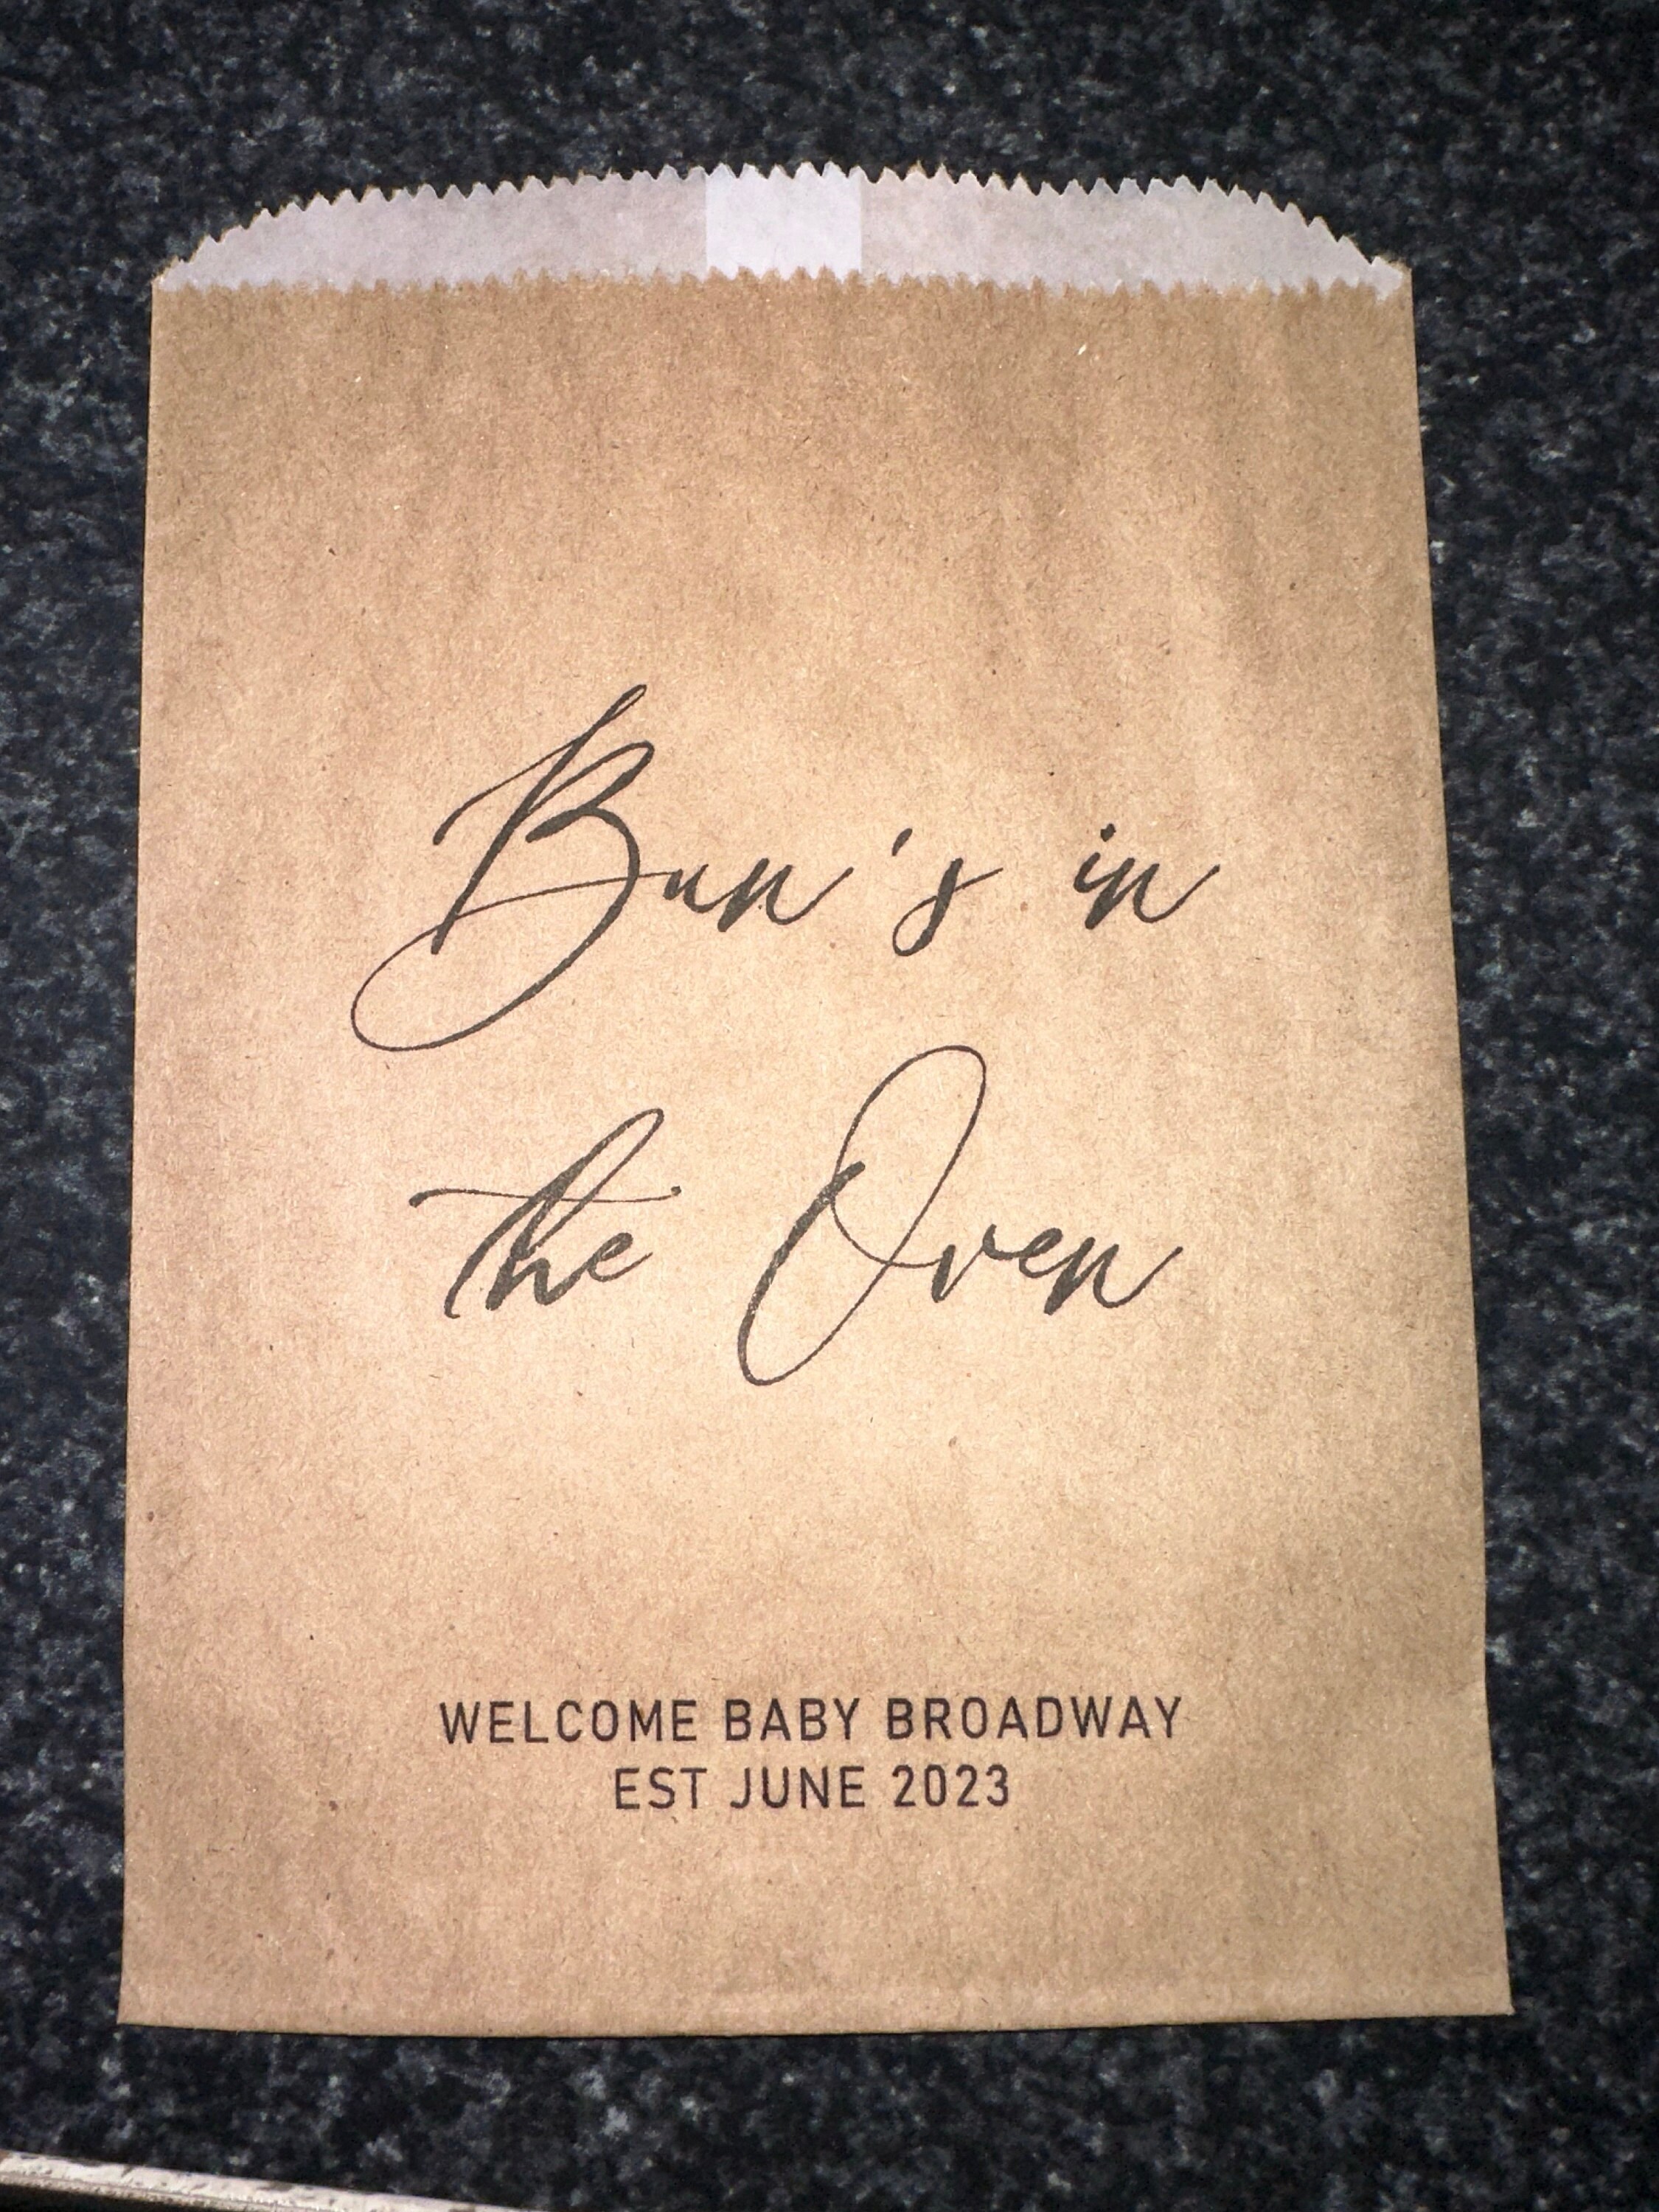 Bun's in
the Oven
WELCOME BABY BROADWAY
EST JUNE 2023